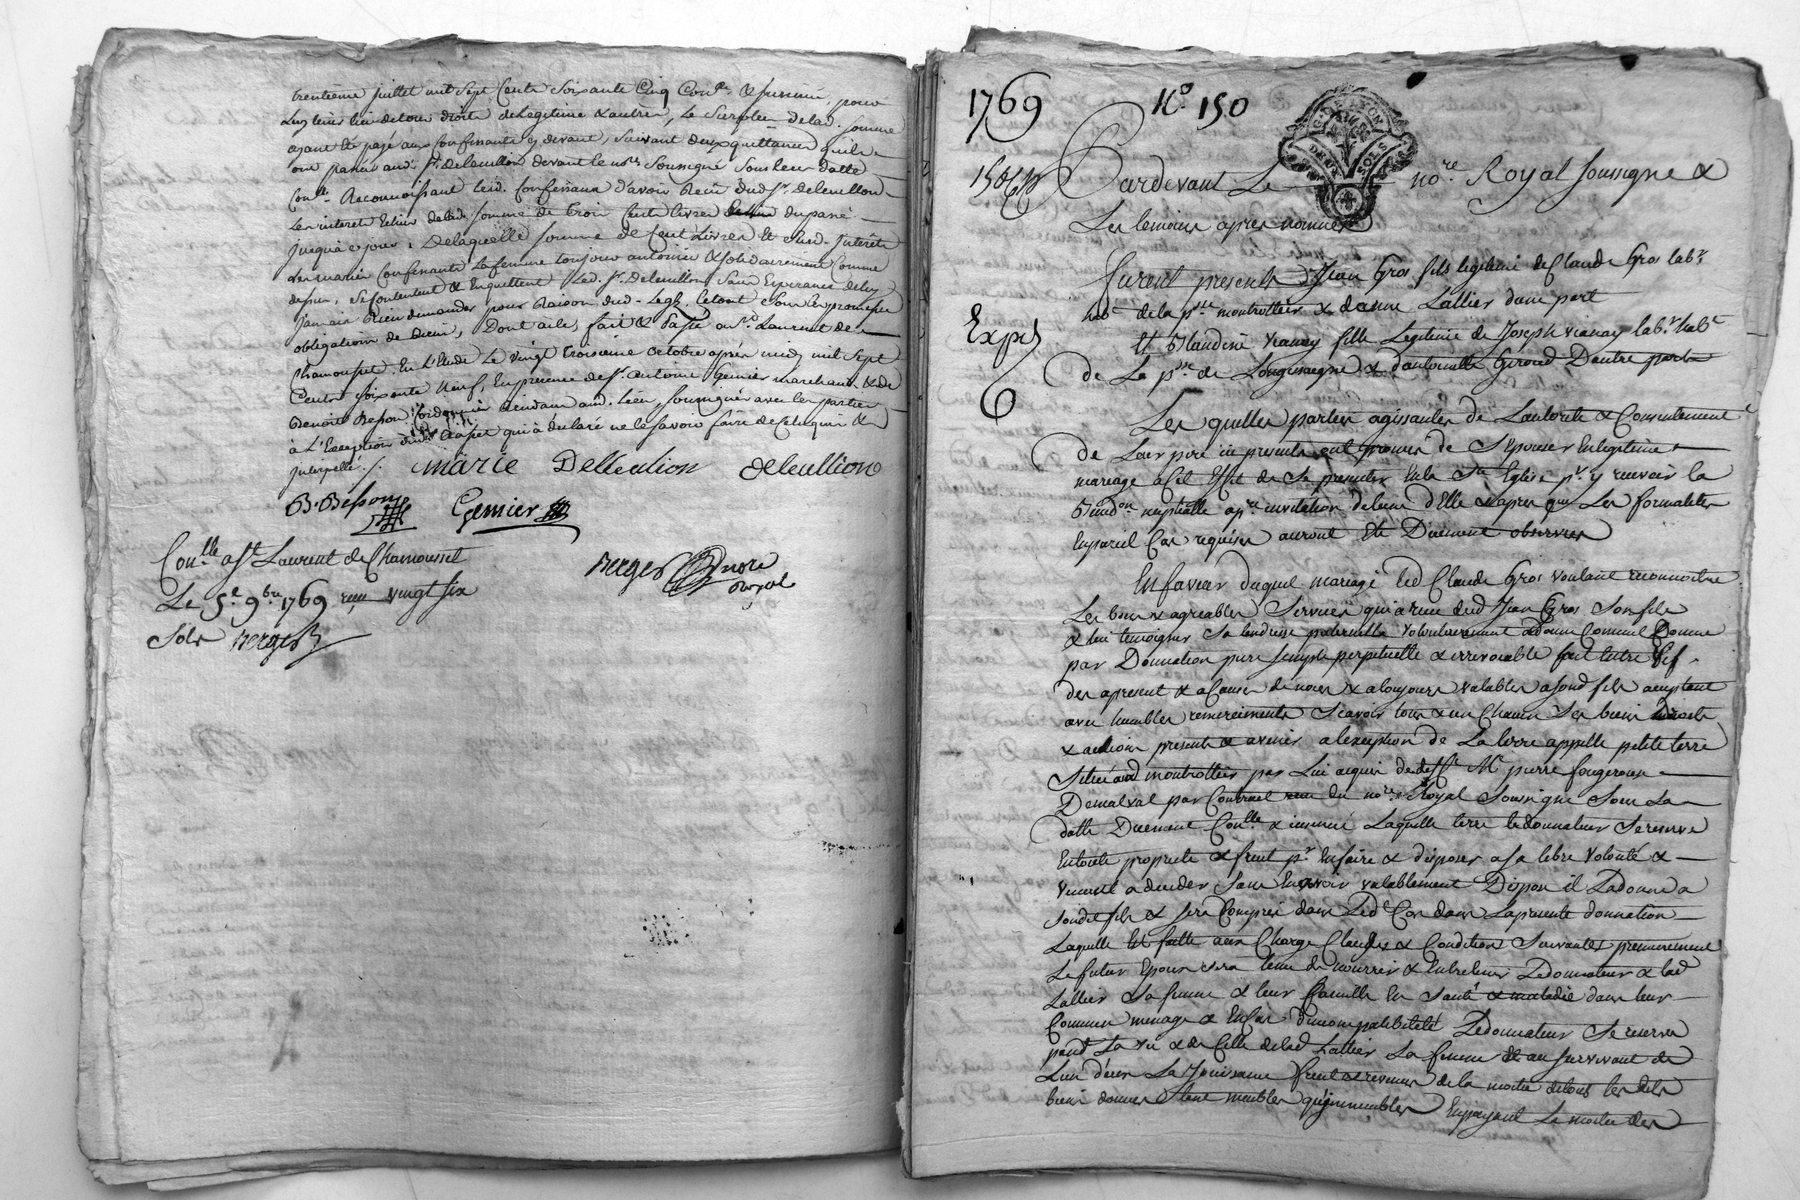 trentieme juillet mil sept cents soixante cinq Con.lé & insinué, pour
luy tenir lieu de tous droits de legitime & autres, le surplus de lad. somme
ayant été payé aux confessants cy devant, suivant des quittances qu'ils
ont passé aud. Sr. deleullion devant le no.re soussigné sous leur datte
Con.lle Reconnoissant lesd. confessants d'avoir Recu dud. Sr. deleullion
les interets de lad. somme de trois cents livres du passé
jusqu'a ce jour, de laquelle somme de cent livres et desd. interets
les mariés confessants la femme toujours autorisée & solidairement comme
dessus, se contentent & en quittent led. Sr. deleullion sans Esperance de luy
jamais Rien demander pour Raison dud. Legs, le tout sous les promesses
obligations de Dieu, Dont acte, fait & Passé a St. Laurent de
Chamousset En L'Etude Le vingt troisieme octobre après midy mil sept
Cents soixante Neuf, En presence de Sr. antoine Gemier marchand & de
Benoit Besson Cordonnier Residants aud. lieu, soussignés avec les parties
à L'Exception dud. Crapet qui à declaré ne le savoir faire de ce Requis &
interpellé /.
marie Delleulion deleullion
B. Besson Gemier
Con.lle a St. Laurent de Chamousset
Le 5.e 9.bre 1769 reçu vingt six
sols Berger
Berger nore
Royal
1769 No. 150
G. DE LYON
DEUX SOLS
Pardevant Le no.re Royal soussigne &
Les temoins apres nommés
furent presents Jean Gros fils legitime de Claude Gros lab.r
hab.t de la p.sse montrottier & de anne Lallier d'une part
Et Blandine vianay fille Legitime de Joseph vianay lab.r hab.t
de La p.sse de Longessaigne & d'antoinette Giroud D'autre part
Expé
Les quelles parties agissantes de L'autorité & Consentement
de Leur pere icy presents ont promis de s'Epouser En legitime
mariage a Cet Effet de se presenter En la Ste Eglise p.r y recevoir la
Benedon nuptialle a p.re invitation de lun d'Elle & apres que Les formalites
En pareil Cas requises auront Eté Duement observées
En faveur duquel mariage led Claude Gros voulant reconnoitre
Les bons & agreables services qu'a reçu dud Jean Gros son fils
& lui temoigner sa tendresse paternelle volontairement a donné Comme il Donne
par Donnation pure simple perpetuelle & irrevocable fait Entre vifs
des apresent & a Cause de noces & a toujours valables a son d fils acceptant
avec humbles remerciments Scavoir tous & un Chacun ses biens droits
& actions presents & avenir a l'exception de La terre appellé petite terre
Située aud montrottier par Lui acquise de defft Mr pierre fougerouse
Demalval par Contract reçu du no.re Royal soussigné sous sa
datte Duement Con.lle & insinué Laquelle terre le donnateur se reserve
En toute proprieté & fruit p.r En faire & disposer a sa libre volonté &
venant a deceder sans En avoir valablement Disposé il La donne a
son dit fils & sera Compris dans Led Cas dans La presente donnation
Laquelle Est faitte aux Charges Clauses & Conditions suivantes premierement
Le futur Epoux sera tenu de nourrir & Entretenir Le donnateur & lad
Lallier sa femme & leur famille En Santé & maladie dans leur
Commun menage & En Cas d'incompatibilité Le donnateur se reserve
pend.t sa vie & de Celle de lad Lallier sa femme & au survivant de
L'un d'eux La Jouissance fruits & revenus de la moitié de tous les dits
biens donnés tant meubles qu'immeubles En payant La moitié des